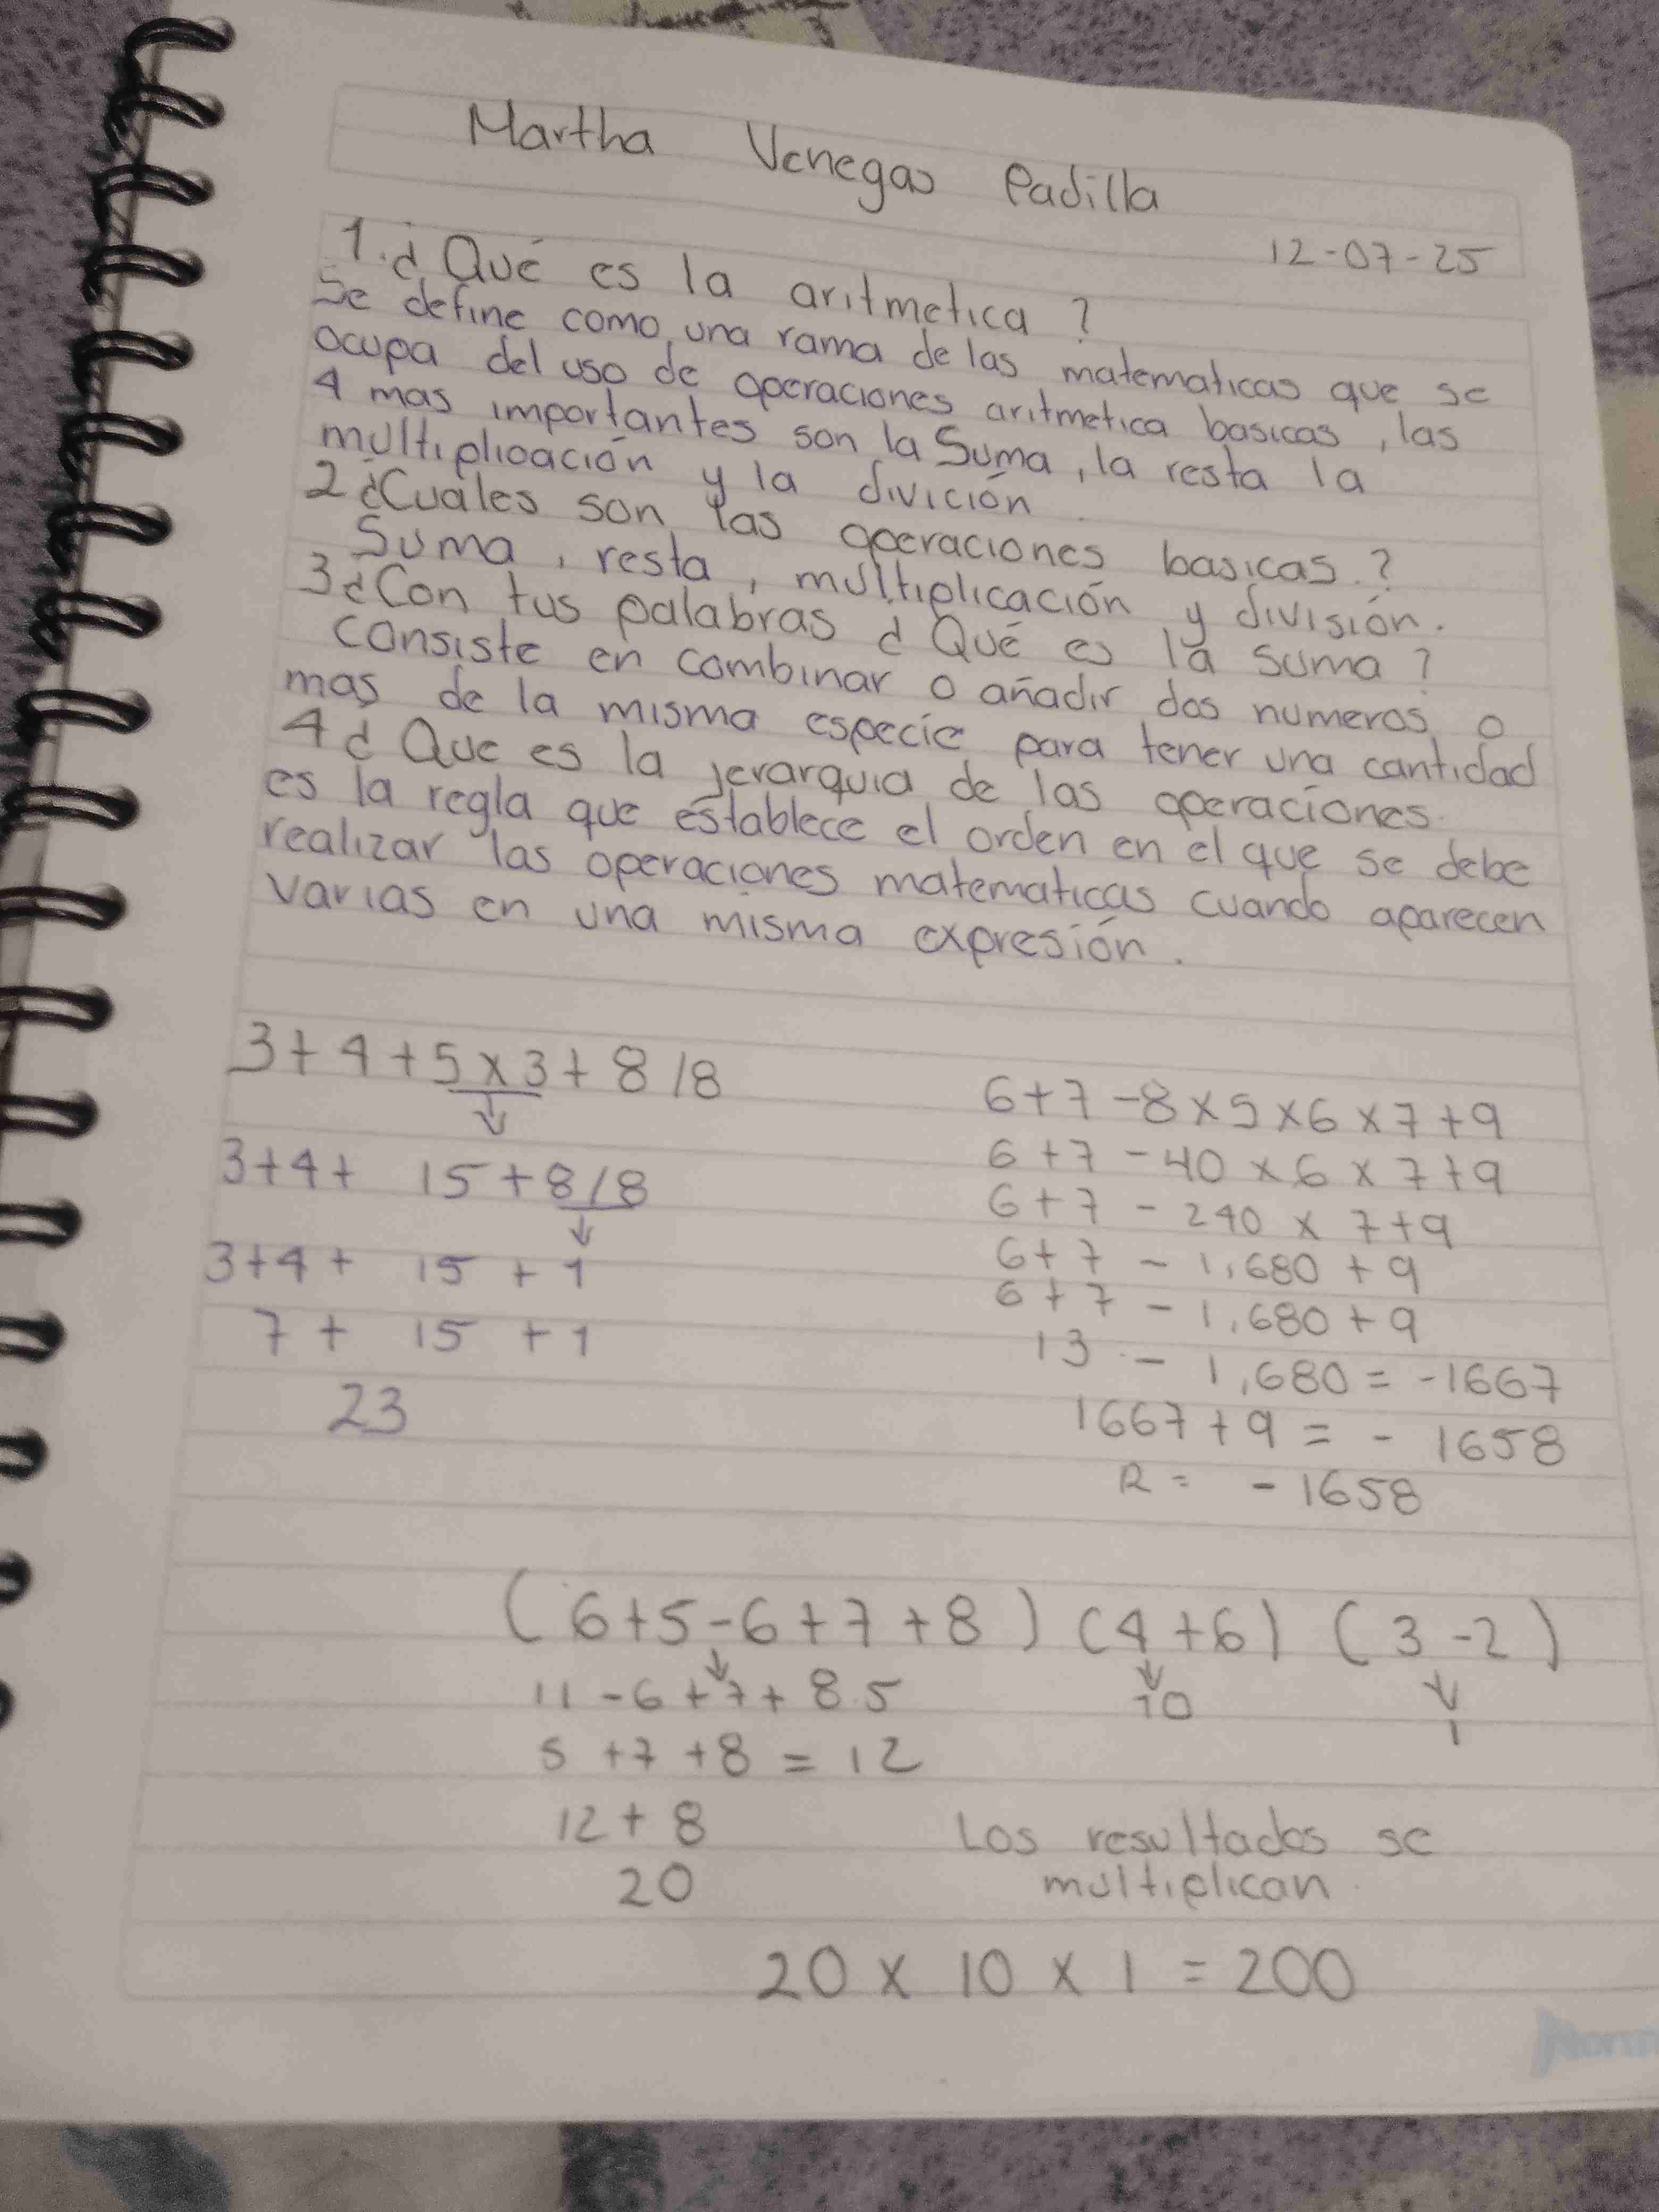 Martha Venegas Padilla
12-07-25
1.¿Qué es la aritmetica?
Se define como una rama de las matematicas que se
ocupa del uso de operaciones aritmetica basicas, las
4 mas importantes son la Suma, la resta la
multiplicación y la divición
2¿Cuáles son las operaciones basicas.?
Suma, resta, multiplicación y división.
3¿Con tus palabras ¿Qué es la suma?
consiste en combinar o añadir dos numeros o
mas de la misma especie para tener una cantidad
4¿Que es la jerarquia de las operaciones.
es la regla que establece el orden en el que se debe
realizar las operaciones matematicas cuando aparecen
varias en una misma expresión.
3+4+5x3+8/8
3+4+ 15+8/8
3+4+ 15+1
7+ 15+1
23
6+7-8x5x6x7+9
6+7-40x6x7+9
6+7-240x7+9
6+7-1,680+9
6+7-1,680+9
13-1,680=-1667
1667+9=-1658
R= -1658
(6+5-6+7+8)(4+6)(3-2)
11-6+7+8.5 10 1
5+7+8=12
12+8
20
Los resultados se
multiplican
20x10x1=200